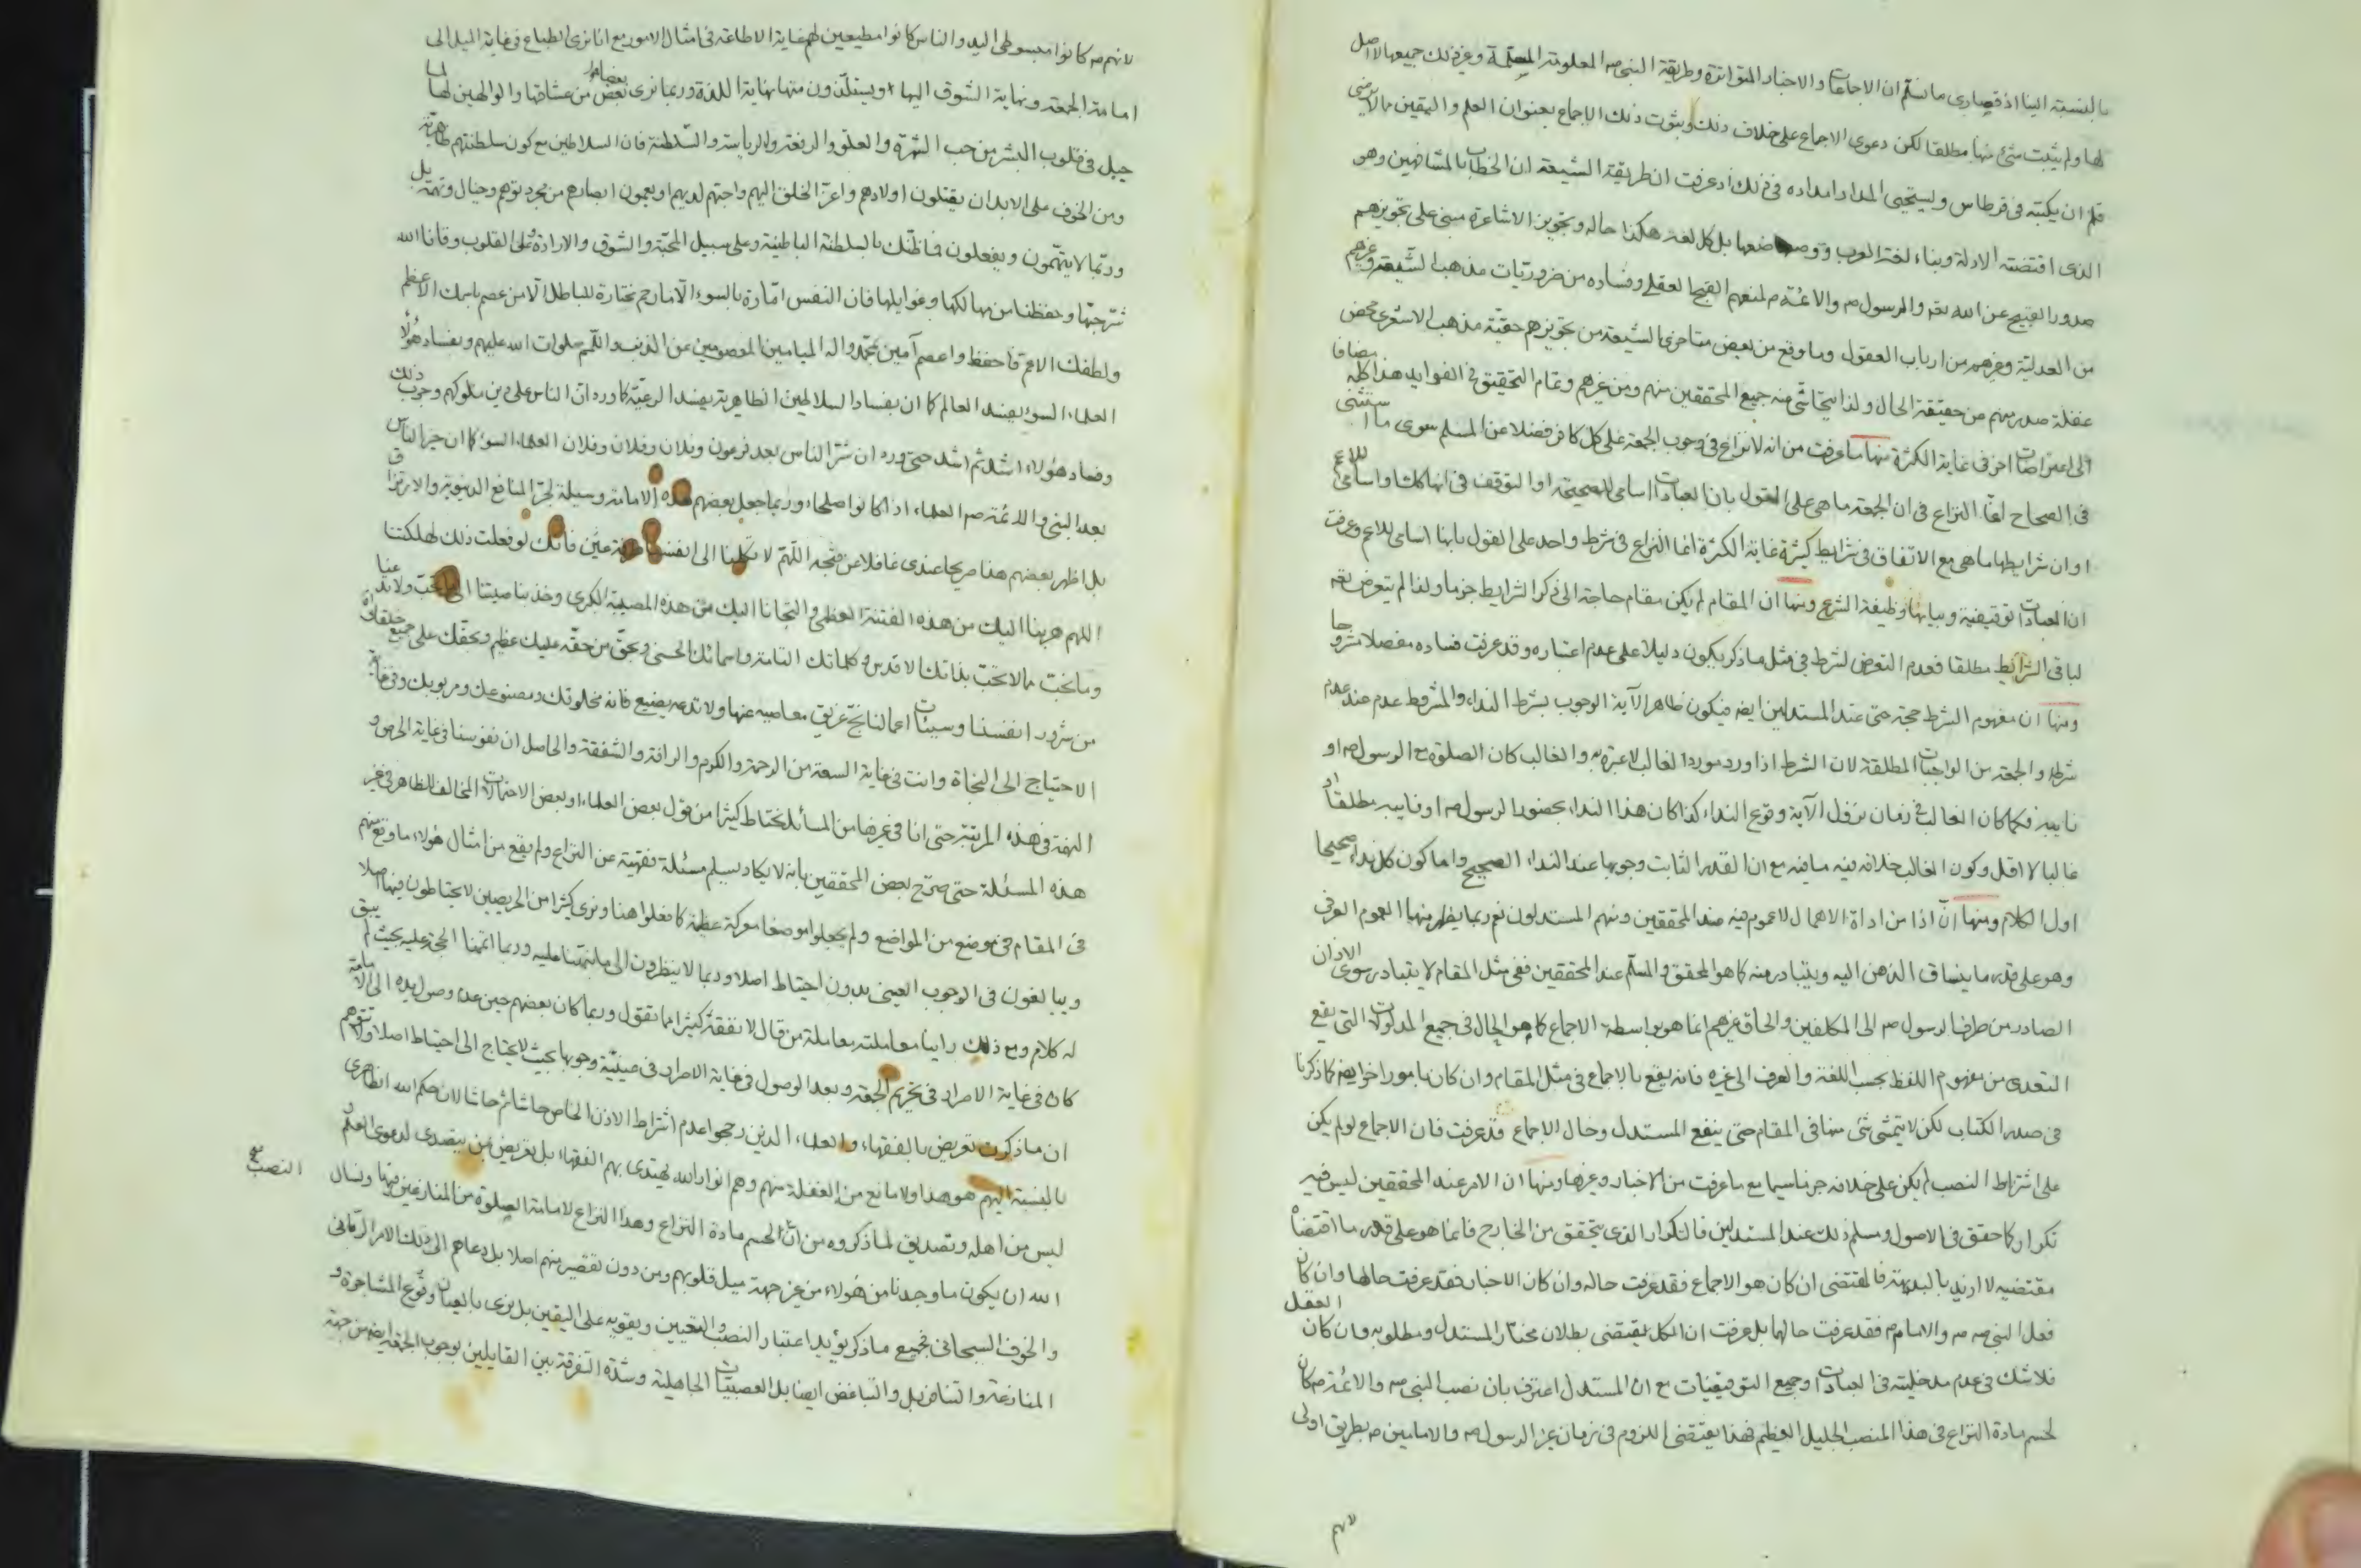 بالنسبة الينا اذ قصارى ما نسلم ان الاجماعات والاخبار المتواترة وطريقة النبى ص المعلومة وغير ذلك جميعها لا اصل
لها ولم يثبت شئ منها مطلقا لكن دعوى الاجماع على خلاف ذلك وثبوت ذلك الاجماع بعنوان العلم واليقين مما لا يرضى
قلم ان يكتبه فى قرطاس وليستحيى المداد امداده فى ذلك اذ عرفت ان طريقة الشيعة ان الخطاب بالمشافهين وهو
الذى اقتضته الادلة وبناء لغة العرب بل كل لغة هكذا حاله وتجويز الاشاعرة مبنى على تجويزهم
صدور القبيح عن الله تعه والرسول ص والائمة م لمنعهم القبح العقلى وفساده من ضروريات مذهب الشيعة وغيرهم
من العدلية وغيرهم من ارباب العقول وما وقع من بعض متاخرى الشيعة من تجويزهم حقية مذهب الاشعرى محض
غفلة صدر منهم من حقيقة الحال ولذا يتحاشى منه جميع المحققين منهم ومن غيرهم وتمام التحقيق فى الفوايد هذا كله مضافا
الى اعتراضات اخر فى غاية الكثرة منها ما عرفت من انه لا نزاع فى وجوب الجمعة على كل كافر فضلا عن المسلم سوى ما استثنى
فى الصحاح انما النزاع فى ان الجمعة ما هى على القول بان العبادات اسامى للصحيحة او التوقف فى انها كك او اسامى للاعم
او ان شرايطها ما هى مع الاتفاق فى شرايط كثيرة غاية الكثرة انما النزاع فى شرط واحد على القول بانها اسامى للاعم وعرفت
ان العبادات توقيفية وبيانها وظيفة الشرع ومنها ان المقام لم يكن مقام حاجة الى ذكر الشرايط جزما ولذا لم يتعرض تعه
لباقى الشرايط مطلقا فعدم التعرض لشرط فى مثل ما ذكر يكون دليلا على عدم اعتباره وقد عرفت فساده مفصلا مشروحا
ومنها ان مفهوم الشرط حجة حتى عند المستدلين ايضه فيكون ظاهر الآية الوجوب بشرط النداء والمشروط عدم عند عدم
شرطه والجمعة من الواجبات المطلقة لان الشرط اذا ورد مورد الغالب لا عبرة به والغالب كان الصلوة مع الرسول ص او
نايبه فكما كان الغالب فى زمان نزول الآية وقوع النداء كذا كان هذا النداء بحضور الرسول ص او نايبه مطلقا او
غالبا لا اقل وكون الغالب خلافه فيه ما فيه مع ان القدر الثابت وجوبها عند النداء الصحيح واما كون كل نداء صحيحا
اول الكلام ومنها انّ اذا من اداة الاهمال لا عموم فيه عند المحققين ومنهم المستدلون نعم ربما يظهر منها العموم العرفى
وهو على قدر ما ينساق الذهن اليه ويتبادر منه كما هو المحقق والمسلم عند المحققين ففى مثل المقام لا يتبادر سوى الاذان
الصادر من طرف الرسول ص الى المكلفين والحاق غيرهم انما هو بواسطة الاجماع كما هو الحال فى جميع المدلولات التى يقع
التعدى من مفهوم اللفظ بحسب اللغة والعرف الى غيره فانه يقع بالاجماع فى مثل المقام وان كان بامور اخر ايضه كما ذكرنا
فى صدر الكتاب لكن لا يتمشى شئ منها فى المقام حتى ينفع المستدل وحال الاجماع قد عرفت فان الاجماع لو لم يكن
على اشتراط النصب لم يكن على خلافه جزما سيما مع ما عرفت من الاخبار وغيرها ومنها ان الامر عند المحققين ليس فيه
تكرار كما حقق فى الاصول ومسلم ذلك عند المستدلين فالتكرار الذى يتحقق من الخارج فانما هو على قدر ما اقتضاه
مقتضيه لا ازيد بالبديهة فالمقتضى ان كان هو الاجماع فقد عرفت حاله وان كان الاخبار فقد عرفت حالها وان كان
فعل النبى ص والامام م فقد عرفت حالها بل عرفت ان الكل يقتضى بطلان مختار المستدل ومطلوبه وان كان العقل
فلا شك فى عدم مدخليته فى العبادات وجميع التوقيفيات مع ان المستدل اعترف بان نصب النبى ص والائمة م كان
لحسم مادة النزاع فى هذا المنصب الجليل العظيم فهذا يقتضى اللزوم فى زمان غير الرسول ص والامامين م بطريق اولى
لانهم
لانهم م كانوا مبسوطى اليد والناس كانوا مطيعين لهم غاية الاطاعة فى امثال الامور مع انا نرى الطباع فى غاية الميل الى
امامة الجمعة ونهاية الشوق اليها ويستلذون منها نهاية اللذة وربما نرى بعض من عشاقها والوالهين لها لما
جبل فى قلوب البشر من حب الشهرة والعلو والرفعة والرياسة والسلطنة فان السلاطين مع كون سلطنتهم ظاهرية
ومن الخوف على الابدان يقتلون اولادهم واعز الخلق اليهم واحبهم لديهم او يعمون ابصارهم من مجرد توهم وخيال وتهمة بل
وربما لا يتهمون ويفعلون فما ظنك بالسلطنة الباطنية وعلى سبيل المحبة والشوق والارادة وعلى القلوب وقانا الله
شرّ حبّها وحفظنا من مهالكها وغوايلها فان النفس امّارة بالسوء الا ما رحم مختارة للباطل الا من عصم باسمك الاعظم
ولطفك الاعم فاحفظ واعصم آمين بمحمد واله الميامين المعصومين عن الذنب واللمم صلوات الله عليهم وبفساد هؤلاء
العلماء السوء يفسد العالم كما ان بفساد السلاطين الظاهرية يفسد الرعية كما ورد ان الناس على دين ملوكهم وجرب ذلك
وفساد هؤلاء اشد ثم اشد حتى ورد ان شرّ الناس بعد فرعون وفلان وفلان وفلان العلماء السوء كما ان خير الناس
بعد النبى والائمة ص العلماء اذا كانوا صلحاء وربما جعل بعضهم هذه الامامة وسيلة لجرّ المنافع الدنيوية والارتزاق
بل اظهر بعضهم هذا صريحا عندى غافلا عن قبحه اللهم لا تكلنا الى انفسنا طرفة عين فانك لو فعلت ذلك لهلكتنا
اللهم هربنا اليك من هذه الفتنة العظمى والتجانا اليك من هذه المصيبة الكبرى وخذ بناصيتنا الى ما تحبّ ولا تدعنا
وما نحب مما لا تحبّ بذاتك الاقدس وكلماتك التامة واسمائك الحسنى وبحق من حقه عليك عظيم وبحقك على جميع خلقك
من شرور انفسنا وسيئات اعمالنا نجّ غريق معاصيه عنها ولا تدعه يضيع فانه مخلوقك ومصنوعك ومربوبك وفى غاية
الاحتياج الى النجاة وانت فى غاية السعة من الرحمة والكرم والرافة والشفقة والحاصل ان نفوسنا فى غاية الحرص و
فى هذه المرتبة حتى انا فى غيرها من المسائل نحتاط كثيرا من قول بعض العلماء او بعض الاحتمالات المخالف للظاهر فى غير
هذه المسئلة حتى صرح بعض المحققين بانه لا يكاد يسلم مسئلة فقهية عن النزاع ولم يقع من امثال هؤلاء ما وقع منهم
فى المقام فى موضع من المواضع ولم يجعلوا موضعا معركة عظيمة كما فعلوا هنا ونرى كثيرا من الحريصين لا يحتاطون فيها اصلا
ويبالغون فى الوجوب العينى بدون احتياط اصلا وربما لا ينظرون الى ما نبهنا عليه وربما اتممنا الحجة عليه بحيث لم يبق
له كلام ومع ذلك راينا معاملته معاملة من قال لا نفقه كثيرا مما تقول وربما كان بعضهم حين عدم وصول يده الى الامامة
كان فى غاية الاصرار فى تحريم الجمعة وبعد الوصول فى غاية الاصرار فى عينية وجوبها بحيث لا يحتاج الى احتياط اصلا ولا تتوهم
ان ما ذكرت تعريض بالفقهاء والعلماء الذين رجحوا عدم اشتراط الاذن الخاص حاشا ثم حاشا لان حكم الله الظاهرى
بالنسبة اليهم هو هذا ولا مانع من الغفلة منهم وهم انوار الله يهتدى بهم الفقهاء بل تعريض بمن يتصدى لدعوى العلم و
ليس من اهله وتصديق لما ذكروه من انّ لحسم مادة النزاع وهذا النزاع لامامة الصلوة من المنازعين فيها ونسال
الله ان يكون ما وجدنا من هؤلاء من غير جهة ميل قلوبهم ومن دون تقصير منهم اصلا بل دعاهم الى ذلك الامر الربانى
والخوف السبحانى فجميع ما ذكر يؤيد اعتبار النصب والتعيين ويقويه على اليقين بل نرى بالعيان وقوع المشاجرة و
المنازعة والتنافر بل والتباغض ايضا بل العصبيات الجاهلية وشدة التفرقة بين القايلين بوجوب الجمعة ايضه من جهة
النصب